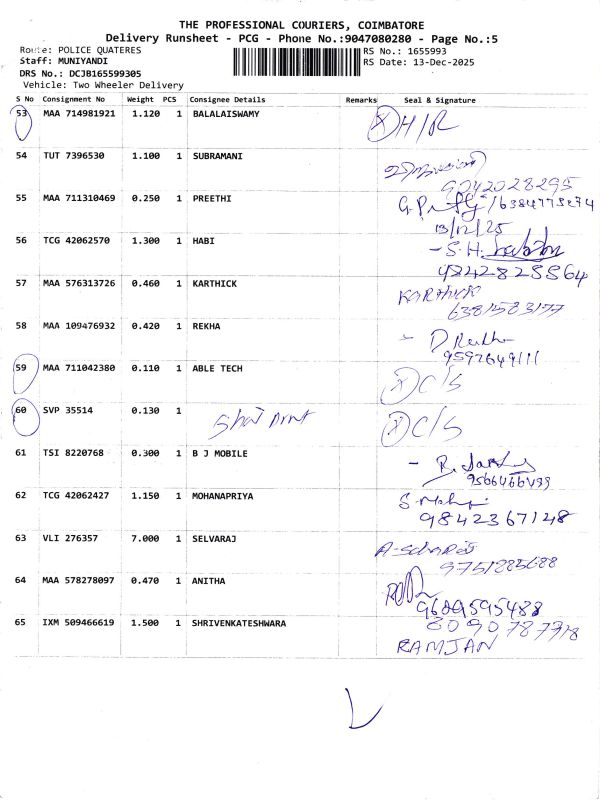 THE PROFESSIONAL COURIERS, COIMBATORE
Delivery Runsheet - PCG - Phone No.:9047080280 - Page No.:5
Route: POLICE QUATERES
RS No.: 1655993
Staff: MUNIYANDI
RS Date: 13-Dec-2025
DRS No.: DCJB165599305
Vehicle: Two Wheeler Delivery
S No Consignment No Weight PCS Consignee Details Remarks Seal & Signature
53 MAA 714981921 1.120 1 BALALAISWAMY X H/R
54 TUT 7396530 1.100 1 SUBRAMANI
9042028295
55 MAA 711310469 0.250 1 PREETHI
13/12/25
56 TCG 42062570 1.300 1 HABI - S.H.
57 MAA 576313726 0.460 1 KARTHICK KARTHICK
6381583177
58 MAA 109476932 0.420 1 REKHA
9597649111
59 MAA 711042380 0.110 1 ABLE TECH X C/S
60 SVP 35514 0.130 1 X C/S
61 TSI 8220768 0.300 1 B J MOBILE
9566466499
62 TCG 42062427 1.150 1 MOHANAPRIYA
9842367148
63 VLI 276357 7.000 1 SELVARAJ
9751285688
64 MAA 578278097 0.470 1 ANITHA
9689595488
65 IXM 509466619 1.500 1 SHRIVENKATESHWARA
RAMJAN